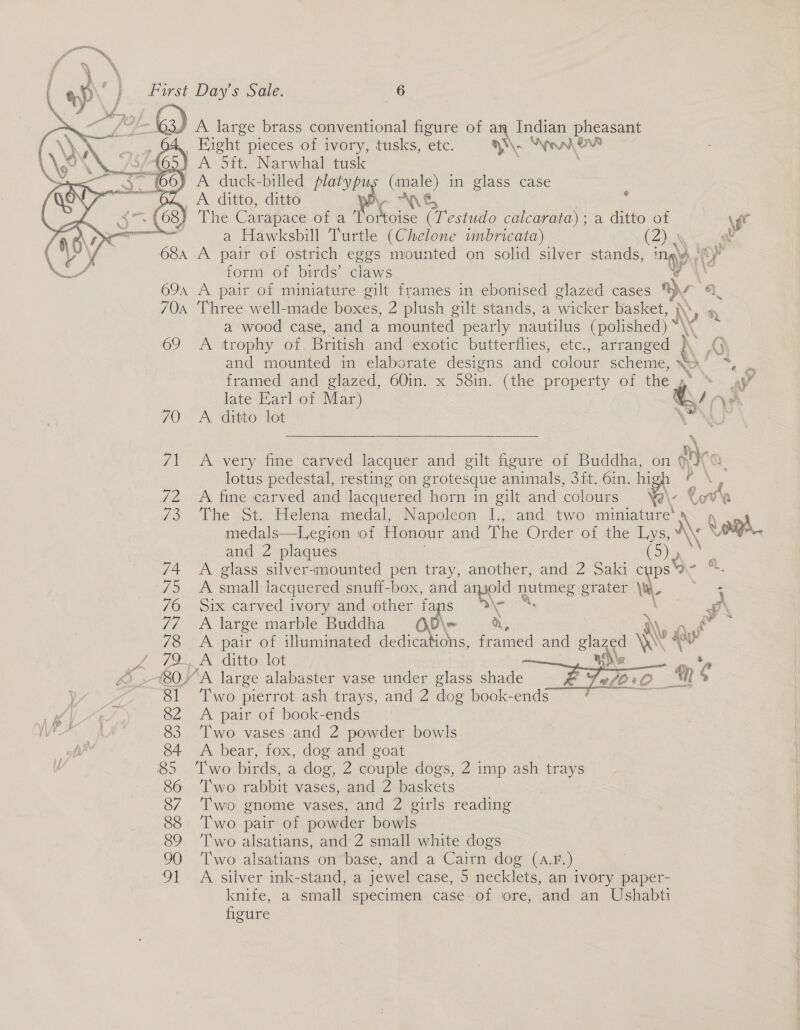 First Day's Sale. 6
63 A large brass conventional figure of an Indian pheasant
64 Eight pieces of ivory, tusks, etc.
65 A 5ft. Narwhal tusk
66 A duck-billed platypus (male) in glass case
67 A ditto, ditto
68 The Carapace of a Tortoise (Testudo calcarata); a ditto of
a Hawksbill Turtle (Chelone imbricata) (2)
68A A pair of ostrich eggs mounted on solid silver stands, in
form of birds' claws
69A A pair of miniature gilt frames in ebonised glazed cases
70A Three well-made boxes, 2 plush gilt stands, a wicker basket,
a wood case, and a mounted pearly nautilus (polished)
69 A trophy of British and exotic butterflies, etc., arranged
and mounted in elaborate designs and colour scheme,
framed and glazed, 60in. x 58in. (the property of the
late Earl of Mar)
70 A ditto lot
71 A very fine carved lacquer and gilt figure of Buddha, on
lotus pedestal, resting on grotesque animals, 3ft. 6in. high
72 A fine carved and lacquered horn in gilt and colours
73 The St. Helena medal, Napoleon I., and two miniature
medals—Legion of Honour and The Order of the Lys,
and 2 plaques (5)
74 A glass silver-mounted pen tray, another, and 2 Saki cups
75 A small lacquered snuff-box, and an old nutmeg grater
76 Six carved ivory and other fans
77 A large marble Buddha
78 A pair of illuminated dedications, framed and glazed
79 A ditto lot
80 A large alabaster vase under glass shade
81 Two pierrot ash trays, and 2 dog book-ends
82 A pair of book-ends
83 Two vases and 2 powder bowls
84 A bear, fox, dog and goat
85 Two birds, a dog, 2 couple dogs, 2 imp ash trays
86 Two rabbit vases, and 2 baskets
87 Two gnome vases, and 2 girls reading
88 Two pair of powder bowls
89 Two alsatians, and 2 small white dogs
90 Two alsatians on base, and a Cairn dog (A.F.)
91 A silver ink-stand, a jewel case, 5 necklets, an ivory paper-
knife, a small specimen case of ore, and an Ushabti
figure